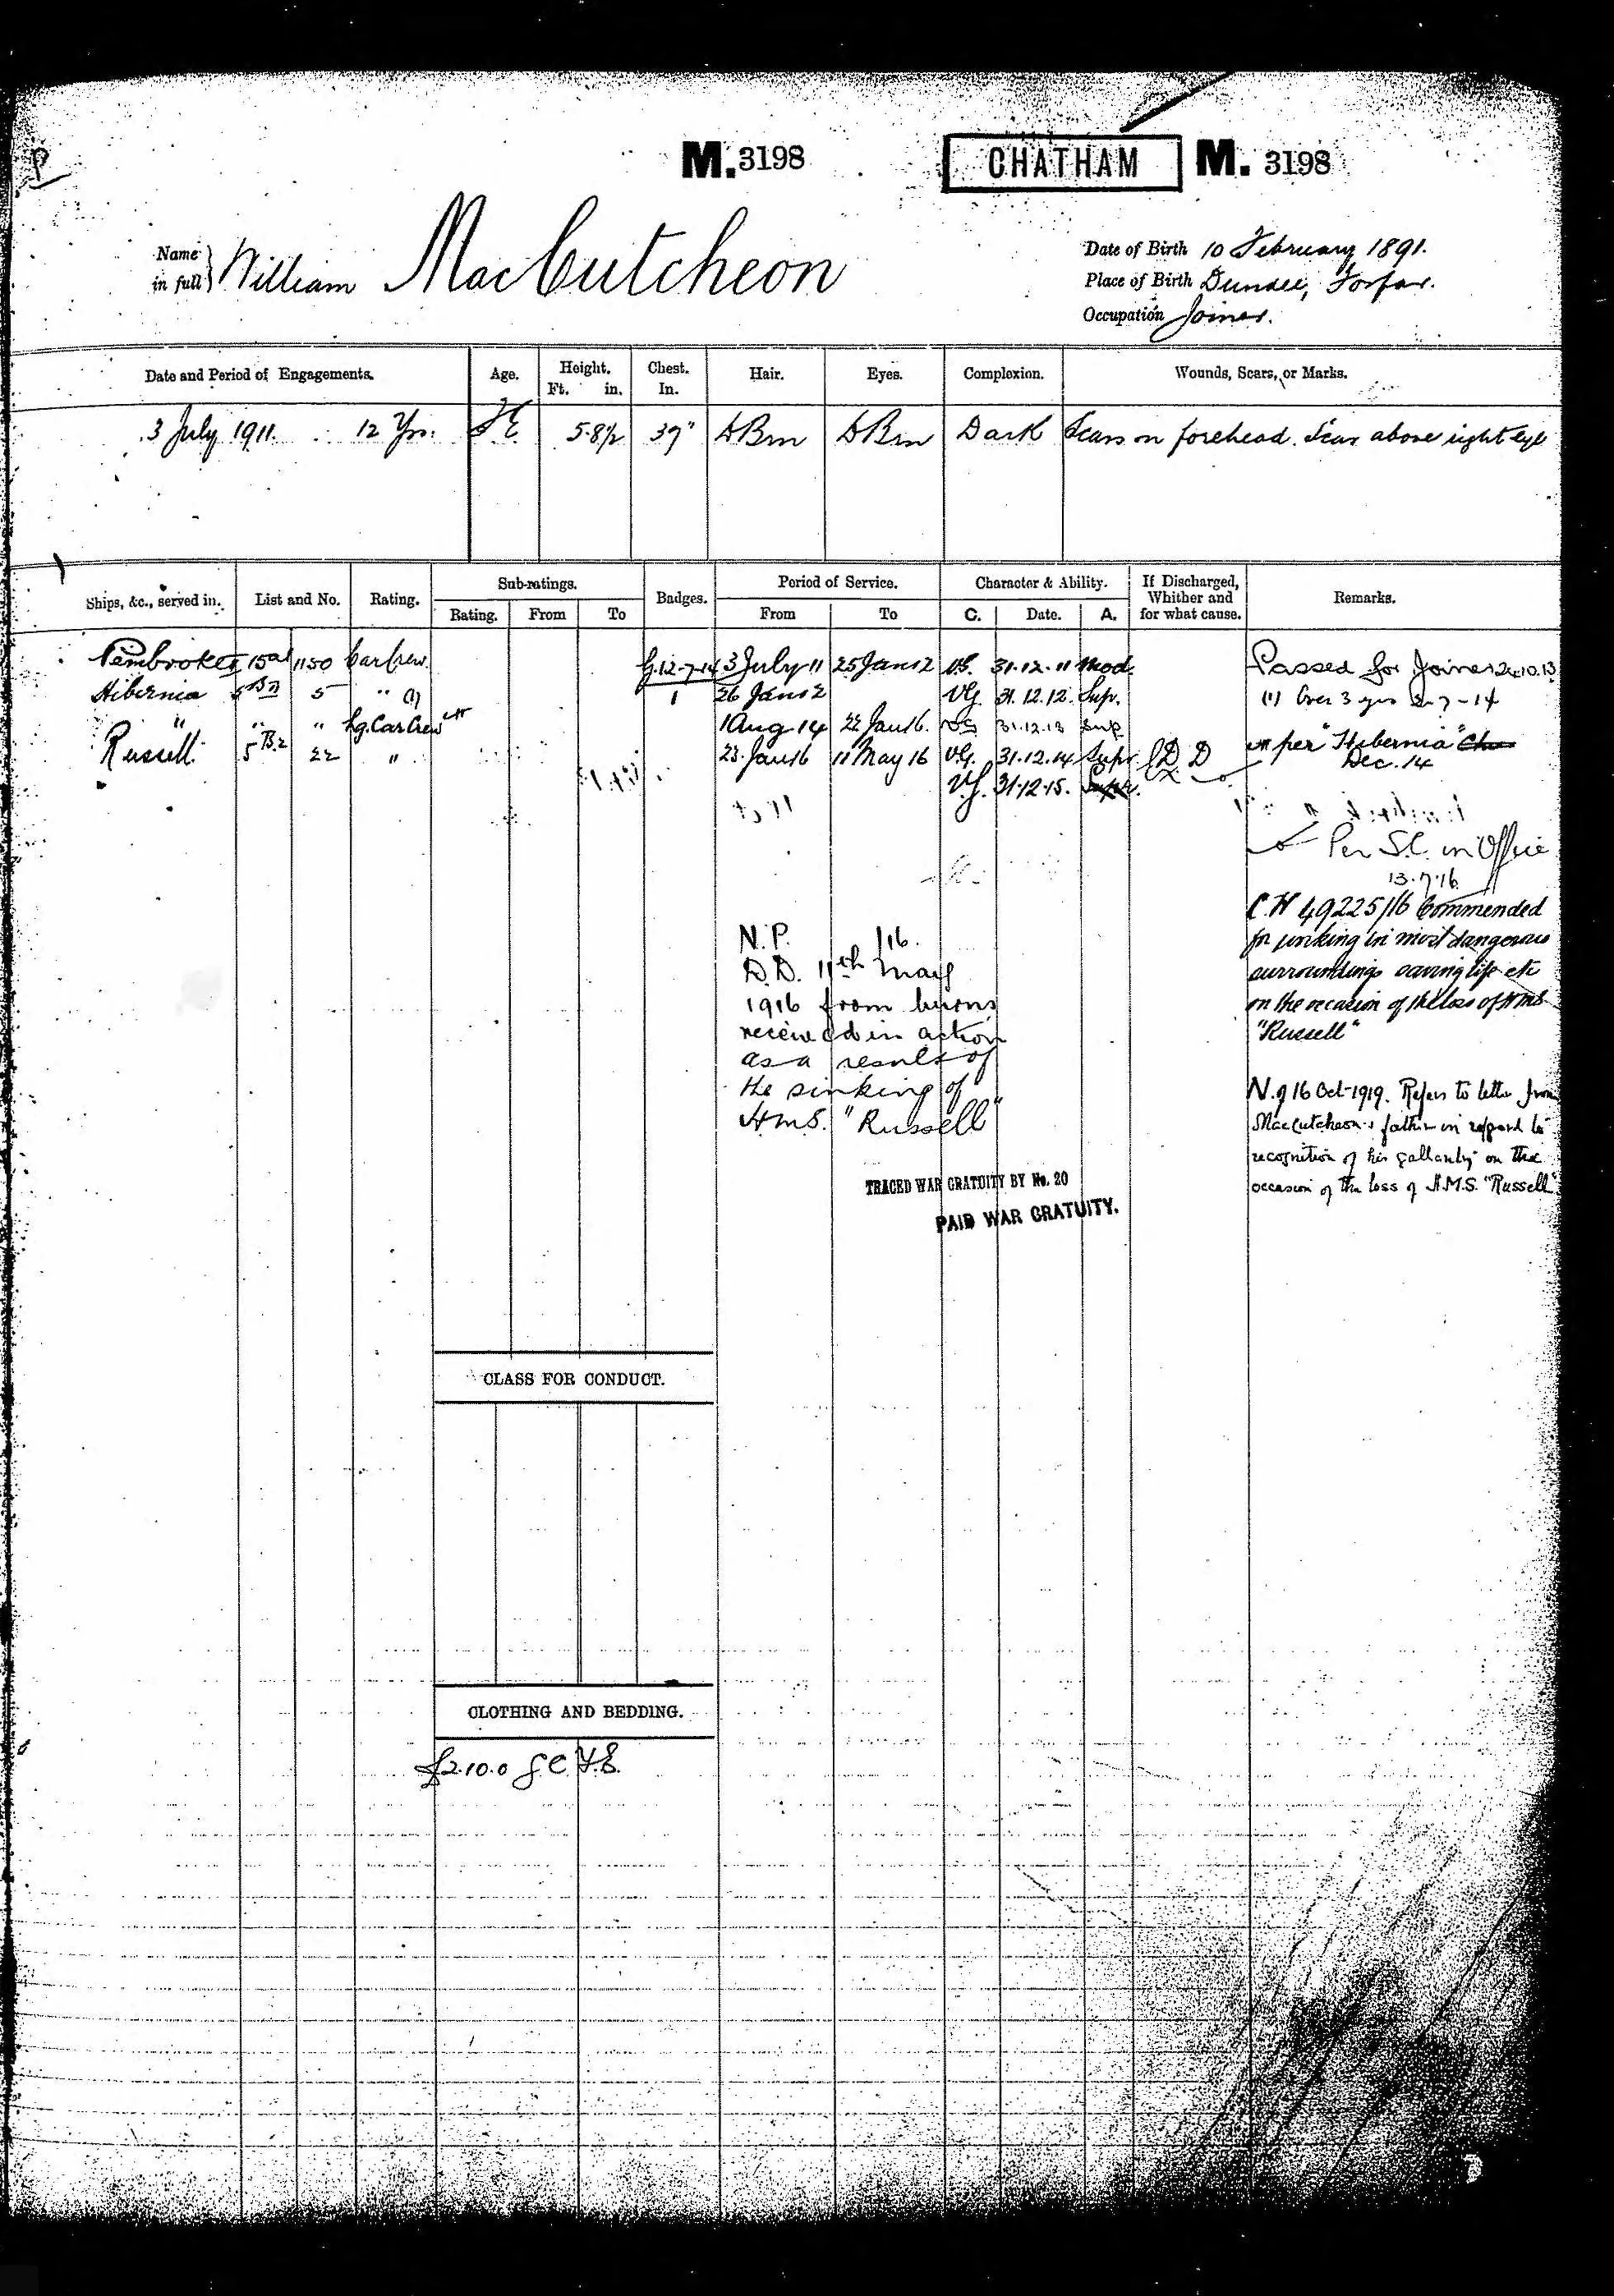 M. 3198
CHATHAM
M. 3198
Name in full } William MacCutcheon
Date of Birth 10 February 1891.
Place of Birth Dundee, Forfar.
Occupation Joiner.
Date and Period of Engagements. Age. Height. Ft. in. Chest. In. Hair. Eyes. Complexion. Wounds, Scars, or Marks.
3 July 1911. 12 Yrs. 5.8½ 37" DBrn DBrn Dark Scars on forehead. Scar above right eye
Ships, &c., served in. List and No. Rating. Sub-ratings. Badges. Period of Service. Character & Ability. If Discharged, Whither and for what cause. Remarks.
Rating. From To From To C. Date. A.
Pembroke II 15a1 1150 Car Crew. G.12-7-14 3 July 11 25 Jan 12 VG. 31.12.11 Mod. Passed for Joiner 24.10.13
Hibernia 5 " (1) 1 26 Jan 12 VG. 31.12.12. Sup. (1) Over 3 yrs 2-7-14
" " " Lg. Car Crew 1 Aug 14 22 Jan 16. VG 31.12.13 Sup
Russell. 5 B.2 22 " 23 Jan 16 11 May 16 VG. 31.12.14 Supr. DD per "Hibernia"
Dec. 14
V.G. 31.12.15. Supr.
Per S.C. in Office
13.7.16
C.W 49225/16 Commended
for working in most dangerous
surroundings saving life etc
on the occasion of the loss of HMS
"Russell"
N.P. /16.
D.D. 11th May
1916 from burns
received in action
as a result of
the sinking of
H.M.S. "Russell"
N.9 16 Oct-1919. Refers to letter from
MacCutcheon's father in regard to
recognition of his gallantry on the
occasion of the loss of H.M.S. "Russell"
TRACED WAR GRATUITY BY No. 20
PAID WAR GRATUITY.
CLASS FOR CONDUCT.
CLOTHING AND BEDDING.
£2.10.0